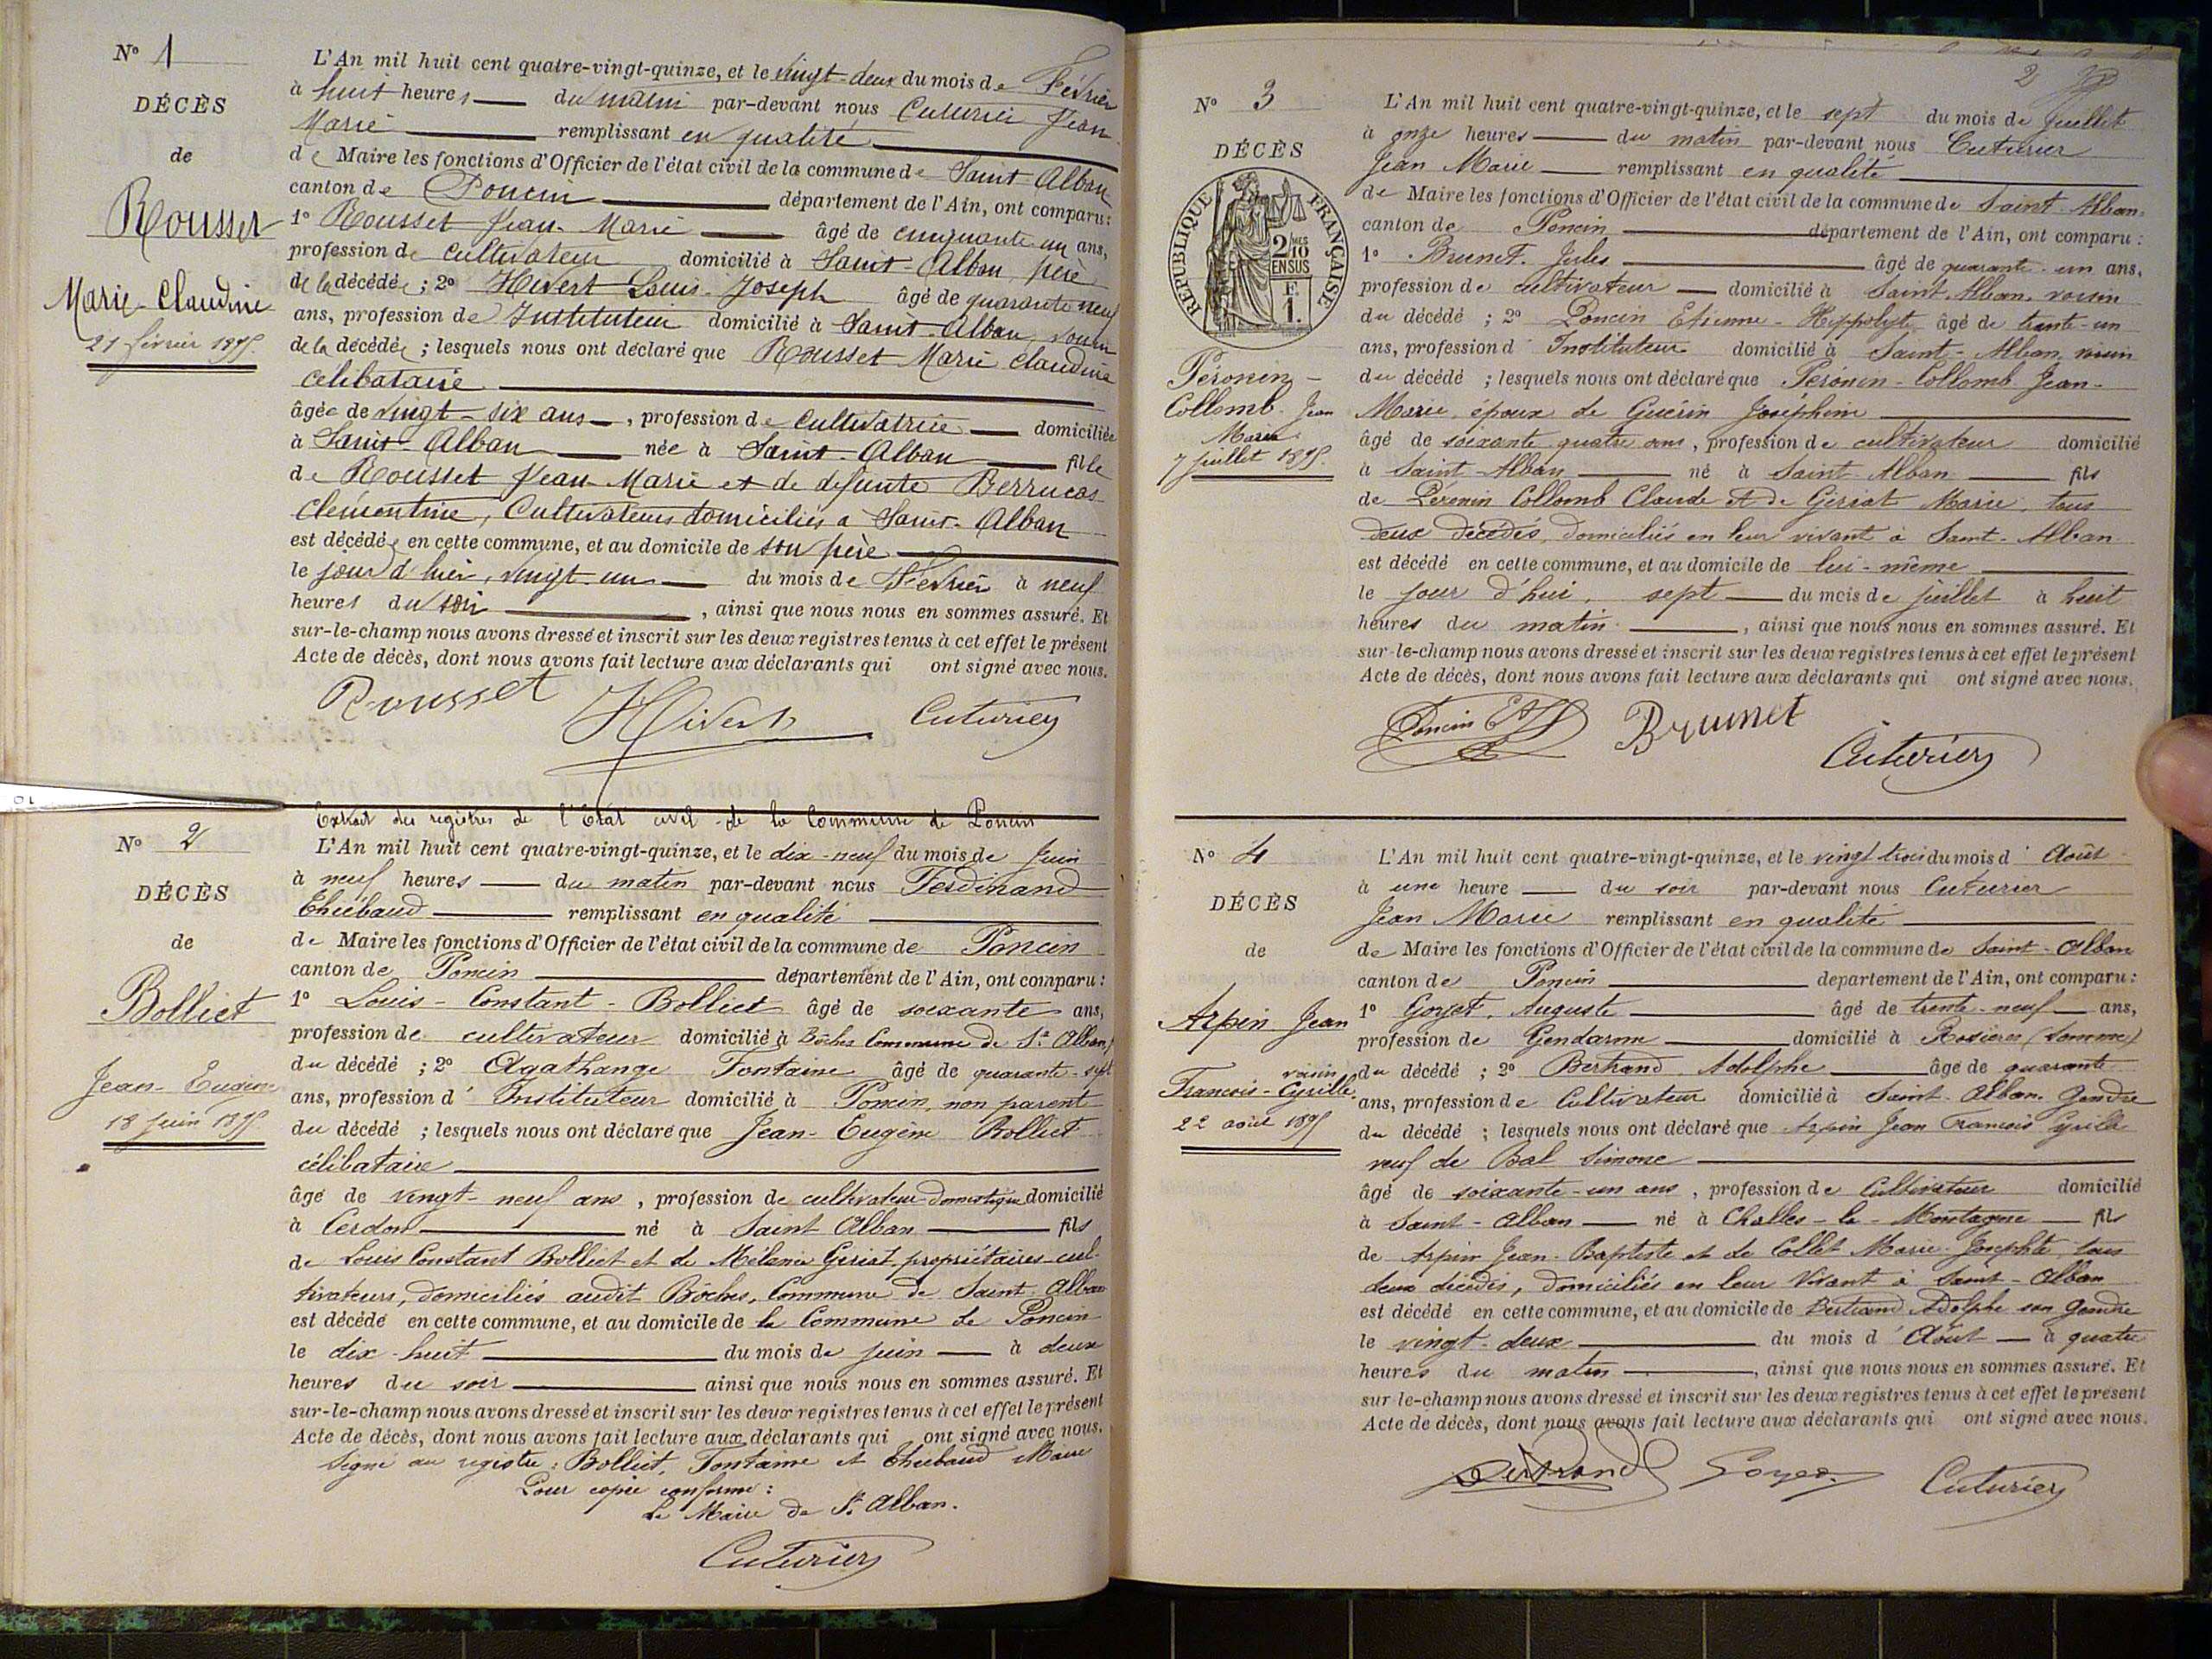 N° 1
DÉCÈS
de
Rousset
Marie-Claudine
21 février 1895.
L'An mil huit cent quatre-vingt-quinze, et le vingt-deux du mois de Février
à huit heures du matin par-devant nous Cuturier Jean
Marie remplissant en qualité
de Maire les fonctions d'Officier de l'état civil de la commune de Saint-Alban
canton de Poncin département de l'Ain, ont comparu:
1° Rousset Jean-Marie âgé de cinquante-un ans,
profession de cultivateur domicilié à Saint-Alban, père
de la décédée ; 2° Hivert Louis-Joseph âgé de quarante neuf
ans, profession de Instituteur domicilié à Saint-Alban, voisin
de la décédée ; lesquels nous ont déclaré que Rousset Marie Claudine
célibataire
âgée de vingt-six ans, profession de cultivatrice domiciliée
à Saint-Alban née à Saint-Alban fille
de Rousset Jean-Marie et de défunte Berrucas
Clémentine, Cultivateurs domiciliés a Saint-Alban
est décédée en cette commune, et au domicile de son père
le jour d'hier, vingt-un du mois de Février à neuf
heures du soir , ainsi que nous nous en sommes assuré. Et
sur-le-champ nous avons dressé et inscrit sur les deux registres tenus à cet effet le présent
Acte de décès, dont nous avons fait lecture aux déclarants qui ont signé avec nous.
Rousset Hivert Cuturier
N° 2
DÉCÈS
de
Bolliet
Jean-Eugène
18 juin 1895.
Extrait des registres de l'Etat civil de la Commune de Poncin
L'An mil huit cent quatre-vingt-quinze, et le dix-neuf du mois de Juin
à neuf heures du matin par-devant nous Ferdinand
Thiébaud remplissant en qualité
de Maire les fonctions d'Officier de l'état civil de la commune de Poncin
canton de Poncin département de l'Ain, ont comparu:
1° Louis-Constant-Bolliet âgé de soixante ans,
profession de cultivateur domicilié à Bôches Commune de St Alban,
du décédé ; 2° Agathange Fontaine âgé de quarante-sept
ans, profession d'Instituteur domicilié à Poncin, non parent
du décédé ; lesquels nous ont déclaré que Jean-Eugène Bolliet
célibataire
âgé de vingt-neuf ans, profession de cultivateur-domestique domicilié
à Cerdon né à Saint Alban fils
de Louis Constant Bolliet et de Mélanie Geriat, propriétaires-cul-
tivateurs, domiciliés audit Bôches, Commune de Saint Alban
est décédé en cette commune, et au domicile de la Commune de Poncin
le dix-huit du mois de juin à deux
heures du soir ainsi que nous nous en sommes assuré. Et
sur-le-champ nous avons dressé et inscrit sur les deux registres tenus à cet effet le présent
Acte de décès, dont nous avons fait lecture aux déclarants qui ont signé avec nous.
Signé au registre : Bolliet, Fontaine et Thiébaud Maire
Pour copie conforme :
Le Maire de St Alban.
Cuturier
2
N° 3
DÉCÈS
RÉPUBLIQUE FRANÇAISE
2/10 MES
EN SUS
F.
1.
Péronin-
Collomb Jean
Marie
7 juillet 1895.
L'An mil huit cent quatre-vingt-quinze, et le sept du mois de Juillet
à onze heures du matin par-devant nous Cuturier
Jean Marie remplissant en qualité
de Maire les fonctions d'Officier de l'état civil de la commune de Saint-Alban
canton de Poncin département de l'Ain, ont comparu :
1° Brunet Jules âgé de quarante-un ans,
profession de cultivateur domicilié à Saint-Alban, voisin
du décédé ; 2° Poncin Etienne-Hippolyte âgé de trente-un
ans, profession d'Instituteur domicilié à Saint-Alban, voisin
du décédé ; lesquels nous ont déclaré que Péronin-Collomb Jean-
Marie, époux de Guérin Joséphine
âgé de soixante quatre ans, profession de cultivateur domicilié
à Saint-Alban né à Saint-Alban fils
de Péronin Collomb Claude et de Geriat Marie, tous
deux décédés, domiciliés en leur vivant à Saint-Alban
est décédé en cette commune, et au domicile de lui-même
le jour d'hui, sept du mois de juillet à huit
heures du matin , ainsi que nous nous en sommes assuré. Et
sur-le-champ nous avons dressé et inscrit sur les deux registres tenus à cet effet le présent
Acte de décès, dont nous avons fait lecture aux déclarants qui ont signé avec nous.
Poncin Brunet Cuturier
N° 4
DÉCÈS
de
Arpin Jean
François-Cyrille.
22 août 1895
L'An mil huit cent quatre-vingt-quinze, et le vingt trois du mois d'Août
à une heure du soir par-devant nous Cuturier
Jean Marie remplissant en qualité
de Maire les fonctions d'Officier de l'état civil de la commune de Saint-Alban
canton de Poncin département de l'Ain, ont comparu :
1° Goyet, Auguste âgé de trente-neuf ans,
profession de Gendarme domicilié à Rosières (Somme)
voisin du décédé ; 2° Bertrand Adolphe âgé de quarante
ans, profession de Cultivateur domicilié à Saint-Alban, Gendre
du décédé ; lesquels nous ont déclaré que Arpin Jean François Cyrille
veuf de Bal Simone
âgé de soixante-un ans, profession de Cultivateur domicilié
à Saint-Alban né à Challes-la-Montagne fils
de Arpin Jean-Baptiste et de Collet Marie-Josephte, tous
deux décédés, domiciliés en leur Vivant à Saint-Alban
est décédé en cette commune, et au domicile de Bertrand Adolphe son gendre
le vingt-deux du mois d'Août à quatre
heures du matin , ainsi que nous nous en sommes assuré. Et
sur-le-champ nous avons dressé et inscrit sur les deux registres tenus à cet effet le présent
Acte de décès, dont nous avons fait lecture aux déclarants qui ont signé avec nous.
Bertrand Goyet Cuturier